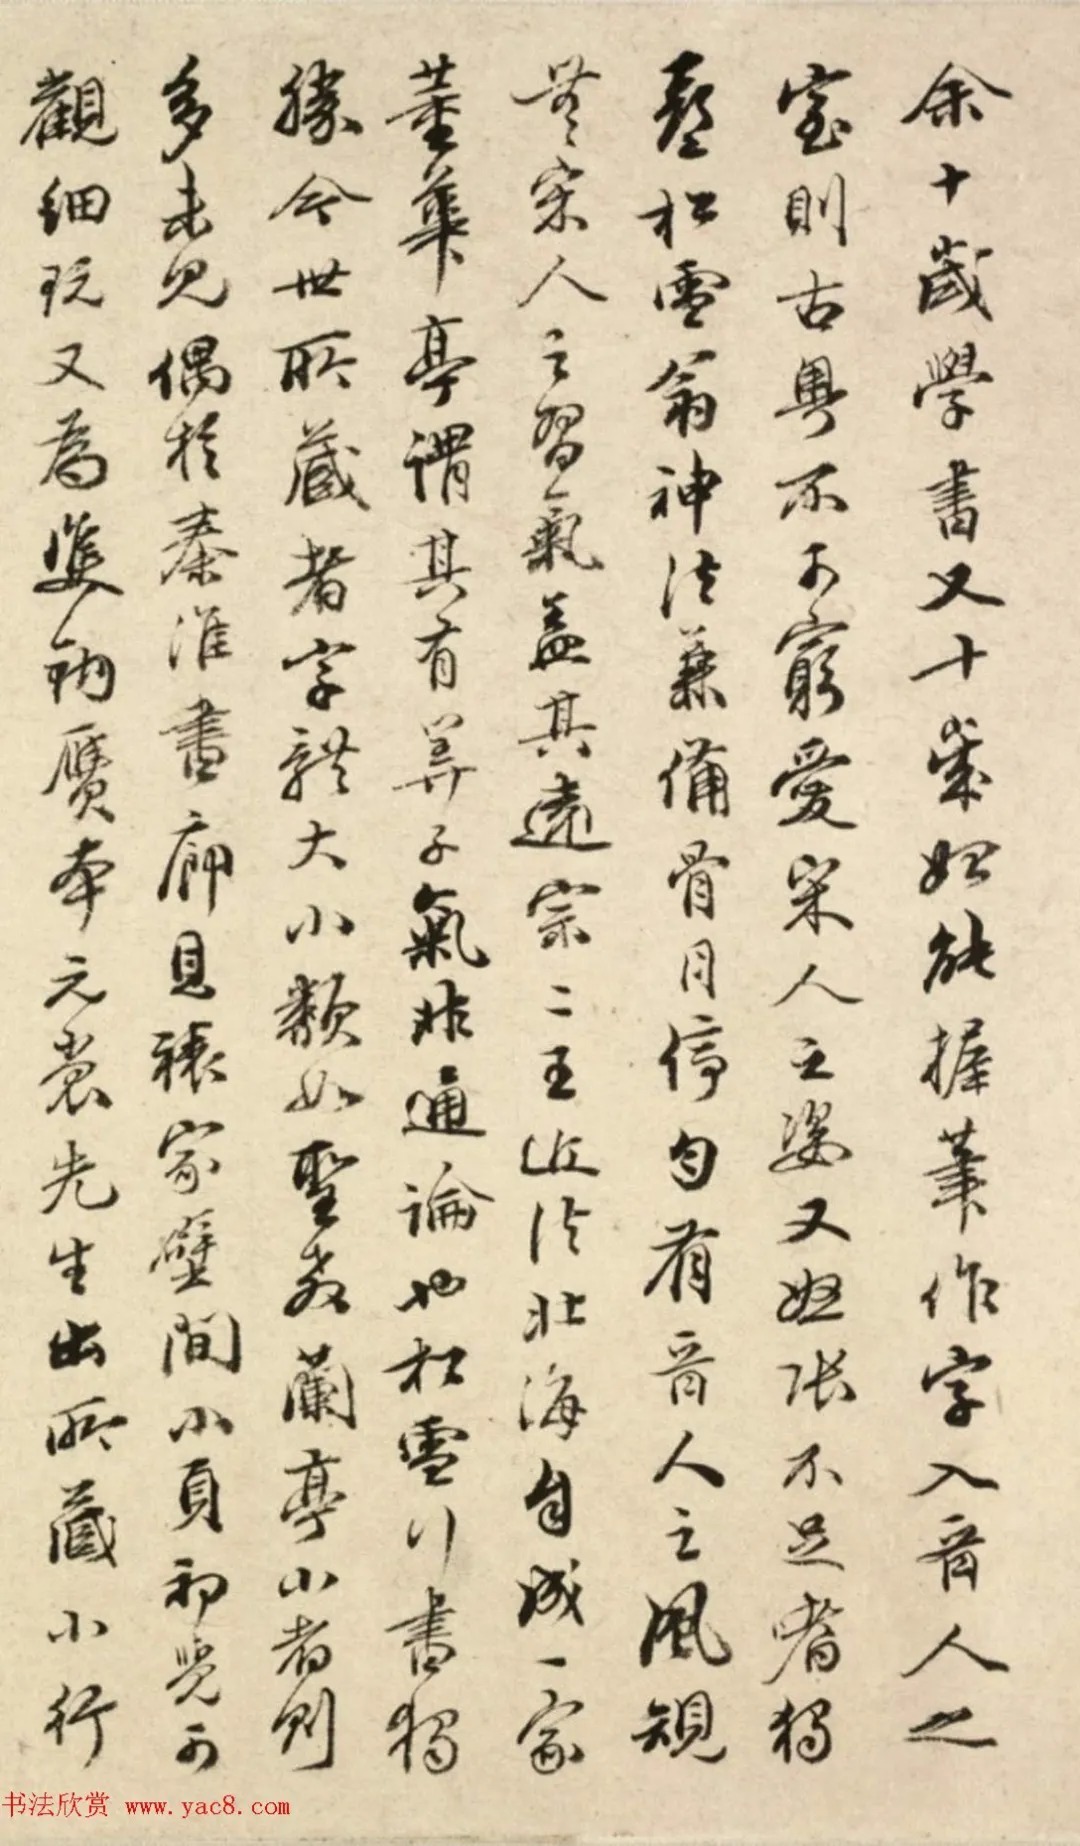 余十歲學書又十歲始能握筆作字入晉人之
室則古奧不可窮愛宋人之姿又怒張不足嗜獨
松雪翁神清兼備骨肉停勻有晉人之風規
無宋人之習氣蓋其遠宗二王近法北海自成一家
董華亭謂其有算子氣非通論也松雪行書獨
勝今世所藏者字體大小類如聖教蘭亭小者則
多未見偶於秦淮書廊見裱家壁間小頁初覺可
觀細玩又為雙鉤贋本元裳先生出所藏小行
书法欣赏 www.yac8.com